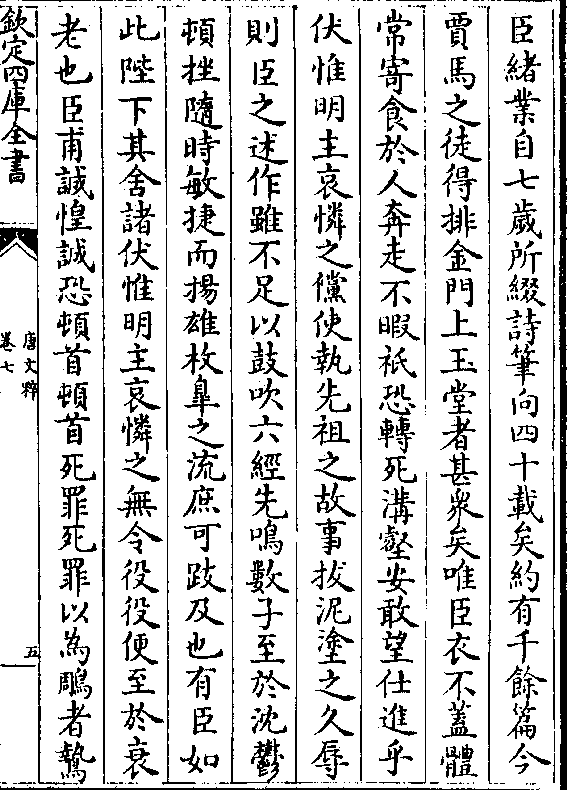 臣緒業自七歲所綴詩筆向四十載矣約有千餘篇今
賈馬之徒得排金門上玉堂者甚衆矣唯臣衣不蓋體
常寄食於人奔走不暇祇恐轉死溝壑安敢望仕進乎
伏惟明主哀憐之儻使執先祖之故事拔泥塗之久辱
則臣之述作雖不足以鼓吹六經先鳴數子至於沈鬱
頓挫隨時敏捷而揚雄枚臯之流庶可跂及也有臣如
此陛下其舍諸伏惟明主哀憐之無令役役便至於衰
老也臣甫誠惶誠恐頓首頓首死罪死罪以為鵰者鷙
欽定四庫全書
唐文粹
卷七
五